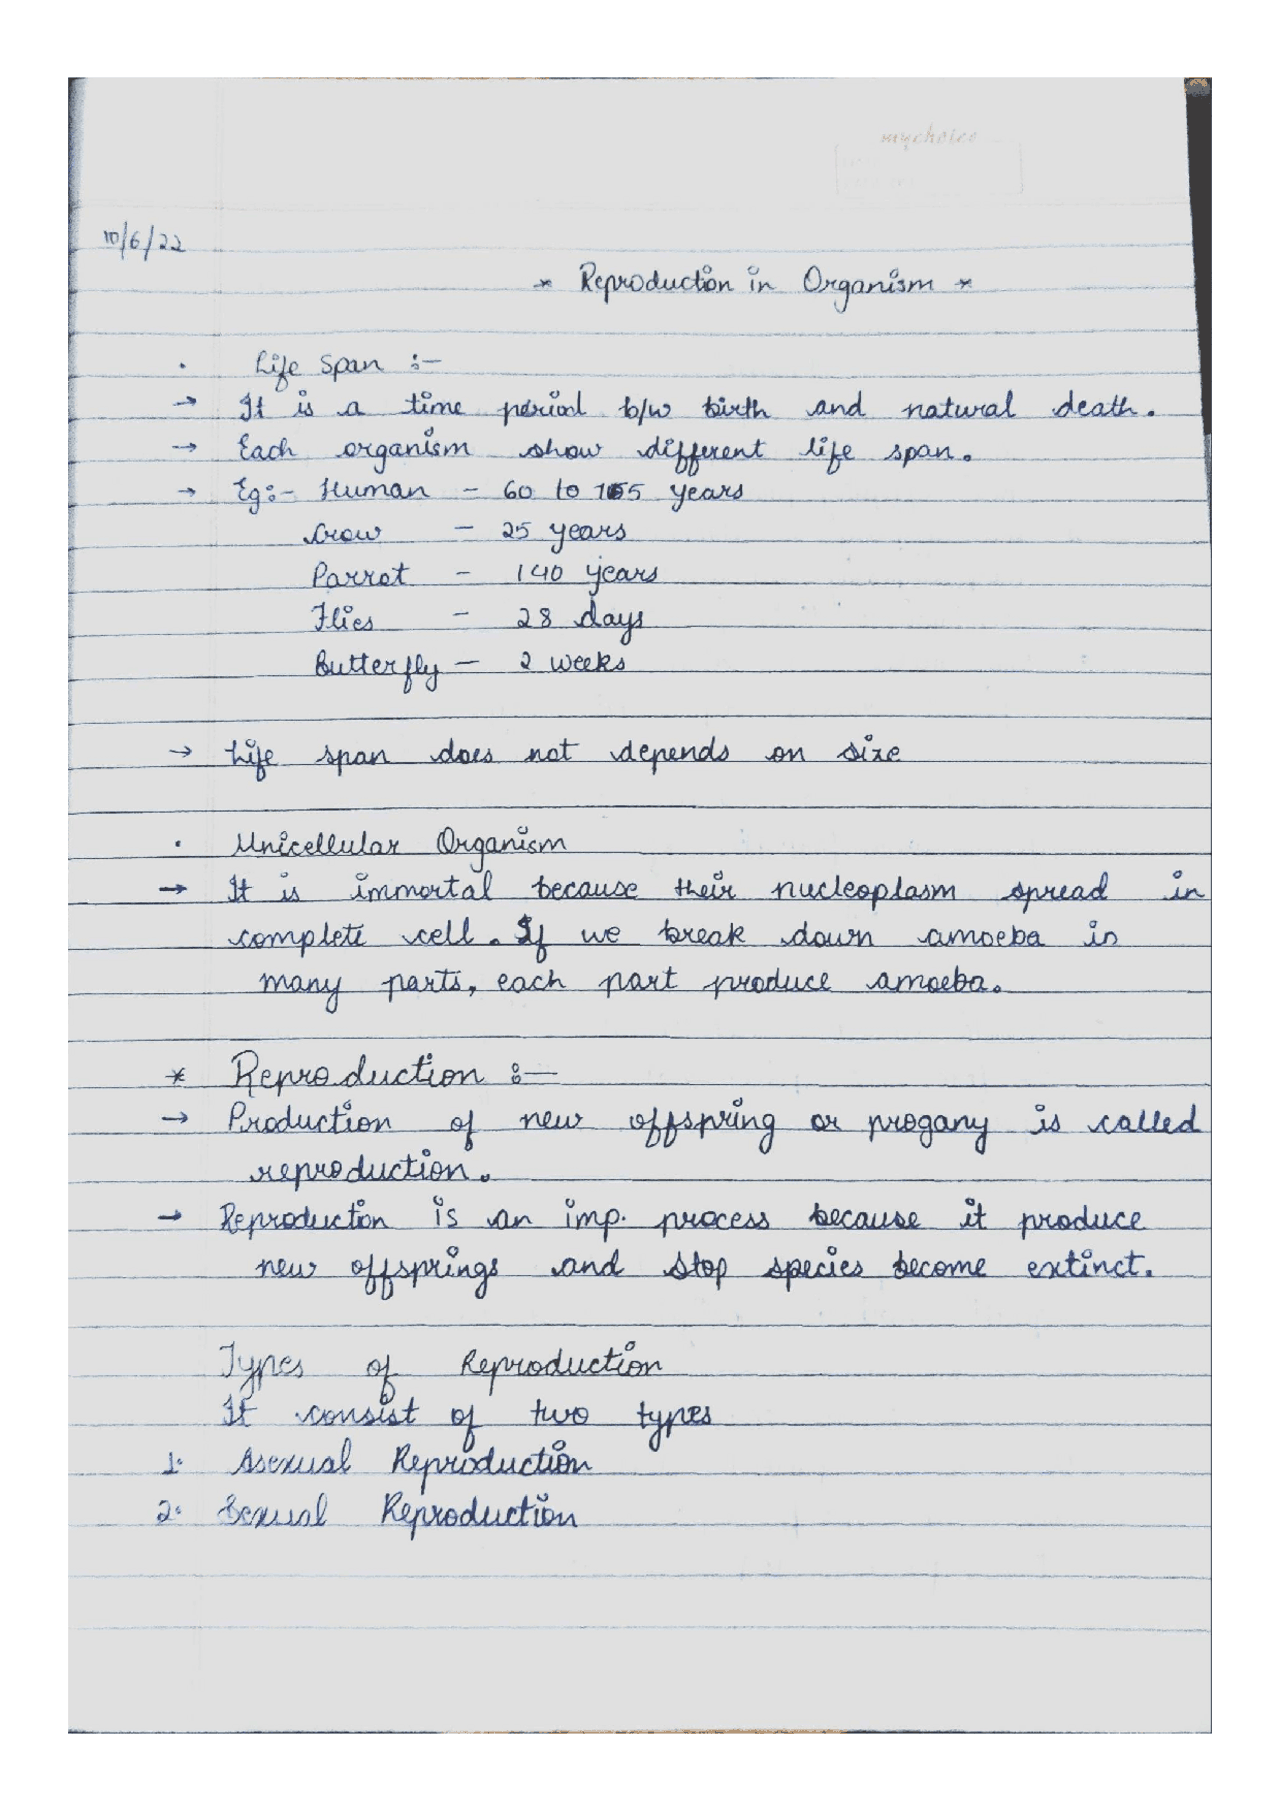 mychoice
10/6/22
* Reproduction in Organism *
· Life Span :-
→ It is a time period b/w birth and natural death.
→ Each organism show different life span.
→ Eg:- Human - 60 to 105 years
Crow - 25 years
Parrot - 140 years
Flies - 28 days
Butterfly - 2 weeks
→ Life span does not depends on size
· Unicellular Organism
→ It is immortal because their nucleoplasm spread in
complete cell. If we break down amoeba in
many parts, each part produce amoeba.
* Reproduction :-
→ Production of new offspring or progany is called
reproduction.
→ Reproduction is an imp. process because it produce
new offsprings and stop species become extinct.
Types of Reproduction
It consist of two types
1. Asexual Reproduction
2. Sexual Reproduction